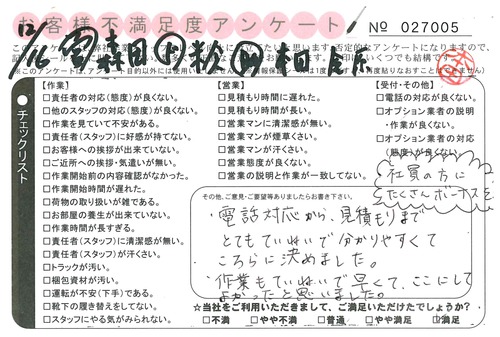 お客様不満足度アンケート
No 027005
【作業】
□責任者の対応(態度)が良くない。
□他のスタッフの対応(態度)が良くない。
□作業を見ていて不安がある。
□責任者(スタッフ)に好感が持てない。
□お客様への挨拶が出来ていない。
□ご近所への挨拶・気遣いが無い。
□作業開始前の内容確認がなかった。
□作業開始時間が遅れた。
□荷物の取り扱いが雑である。
□お部屋の養生が出来ていない。
□作業時間が長すぎる。
□責任者(スタッフ)に清潔感が無い。
□責任者(スタッフ)が汗くさい。
□トラックが汚い。
□梱包資材が汚い。
□運転が不安(下手)である。
□靴下の履き替えをしてない。
□スタッフにやる気がみられない。
【営業】
□見積もり時間に遅れた。
□見積もり時間が長い。
□営業マンに清潔感が無い。
□営業マンが煙草くさい。
□営業マンが汗くさい。
□営業態度が良くない。
□営業の説明と作業が一致してない。
【受付・その他】
□電話の対応が良くない。
□オプション業者の説明
・作業が良くない。
□オプション業者の対応
(態度)が良くない。
チェックリスト
社員の方に
たくさんボーナスを
その他、ご意見・ご要望等ありましたらお書き下さい。
・電話対応から、見積もりまで
とてもていねいで分かりやすくて
こちらに決めました。
・作業もていねいで早くて、ここにして
よかったと思いました。
☆当社をご利用いただきまして、ご満足いただけたでしょうか?
□不満 □やや不満 □普通 □やや満足 ☑満足